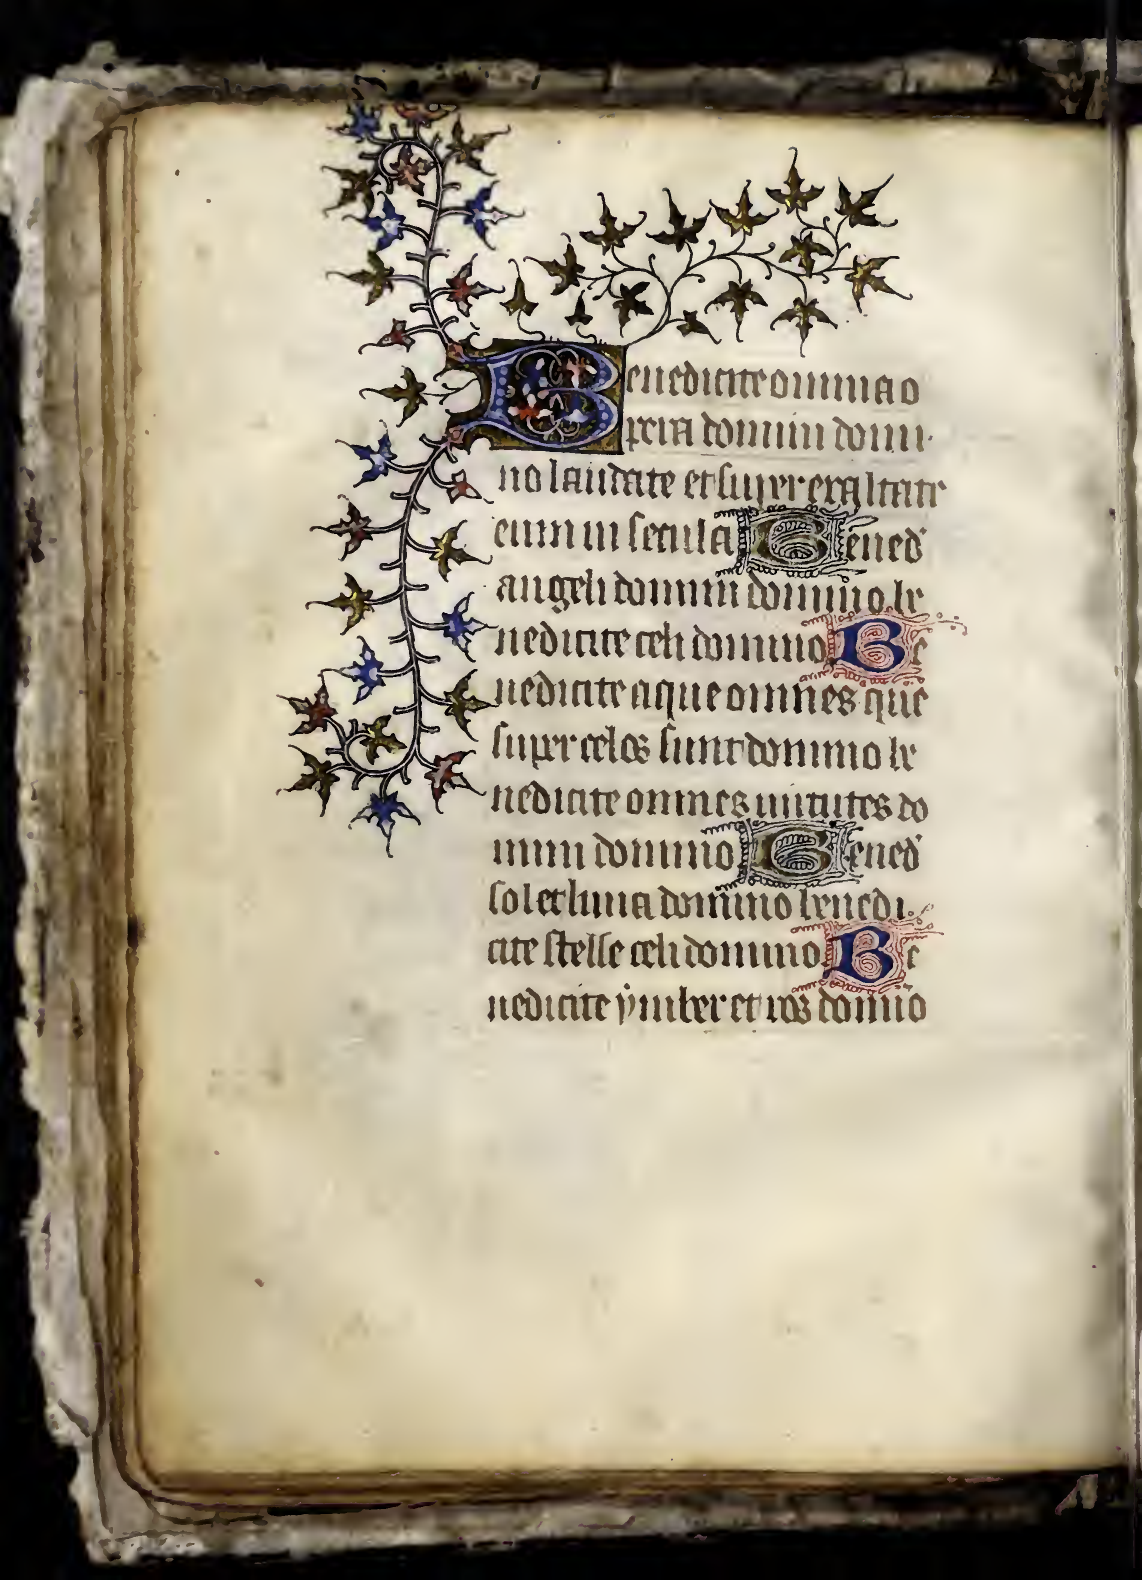 Benedicite omnia o
pera domini domi
no laudate et super exaltate
eum in secula Bened̓
angeli domini domino be
nedicite celi domino Be
nedicite aque omnes que
super celos sunt domino be
nedicite omnes uirtutes do
mini domino Bened̓
sol et luna domino benedi
cite stelle celi domino Be
nedicite ymber et ros domino